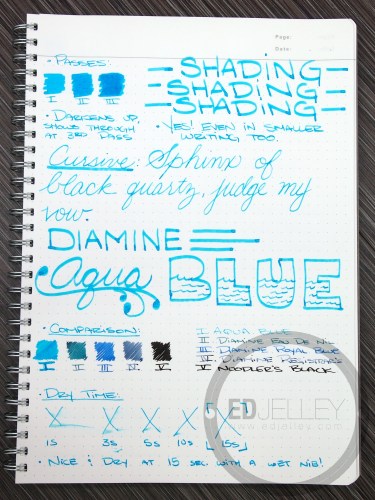 Page:
Date:
· Passes:
I II III
- SHADING -
- SHADING -
- SHADING -
· Darkens up, shows through at 3rd pass
· Yes! Even in smaller writing too.
Cursive: Sphinx of
black quartz, judge my
vow.
DIAMINE
Aqua BLUE
· Comparison:
I II III IV V
I Aqua Blue
II Diamine Eau De Nil
III Diamine Royal Blue
IV Diamine Registrar's
V Noodler's Black
· Dry Time:
X X X X [X]
1s 3s 5s 10s 15s
EDJELLEY
www.edjelley.com
· Nice & Dry at 15 sec. with a wet nib!